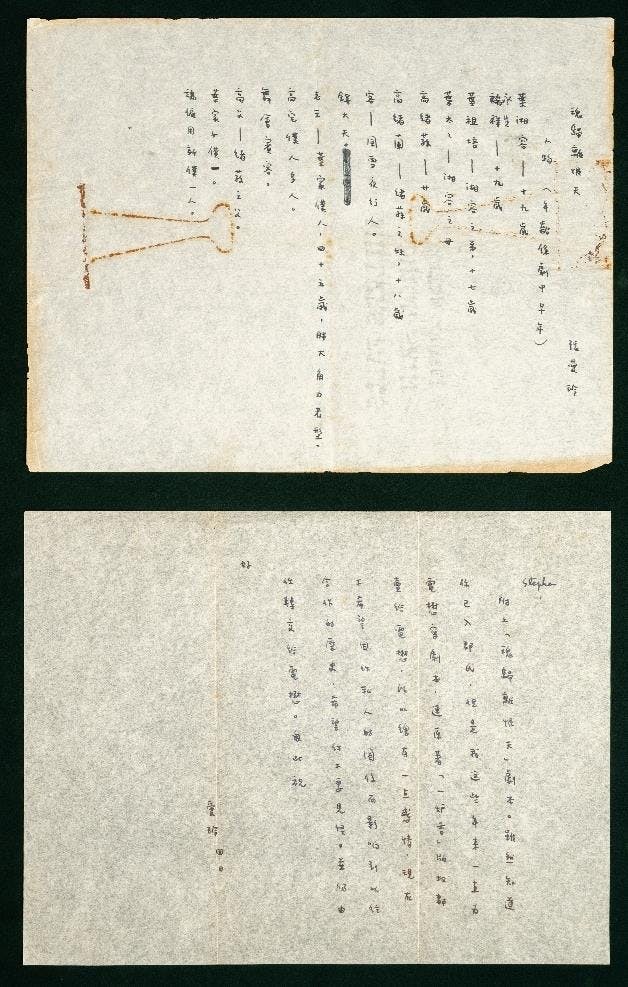 魂歸離恨天　　張愛玲
人物（年齡係劇中早年）
葉湘容——十九歲
端祥——十九歲
葉祖培——湘容之弟，十七歲
葉太太——湘容之母
高緒蓀——廿歲
高緒蘭——緒蓀之妹，十八歲
客——風雪夜行人。
錢大夫。
老王——葉家僕人，四十五歲，胖大有力型。
高宅僕人多人。
舞會賓客。
高父——緒蓀之父。
葉家女僕一。
端僱用新僕一人。
Stephen,
附上「魂歸離恨天」劇本。雖然知道
你已入邵氏，但是我這些年來一直為
電懋寫劇本，連原著「一炉香」版权都
賣給電懋，所以總有一点感情，現在
不希望因你私人的關係而影响到以往
合作的歷史，希望你不要見怪。並仍由
你轉交給電懋。匆此祝
好
愛玲 四日